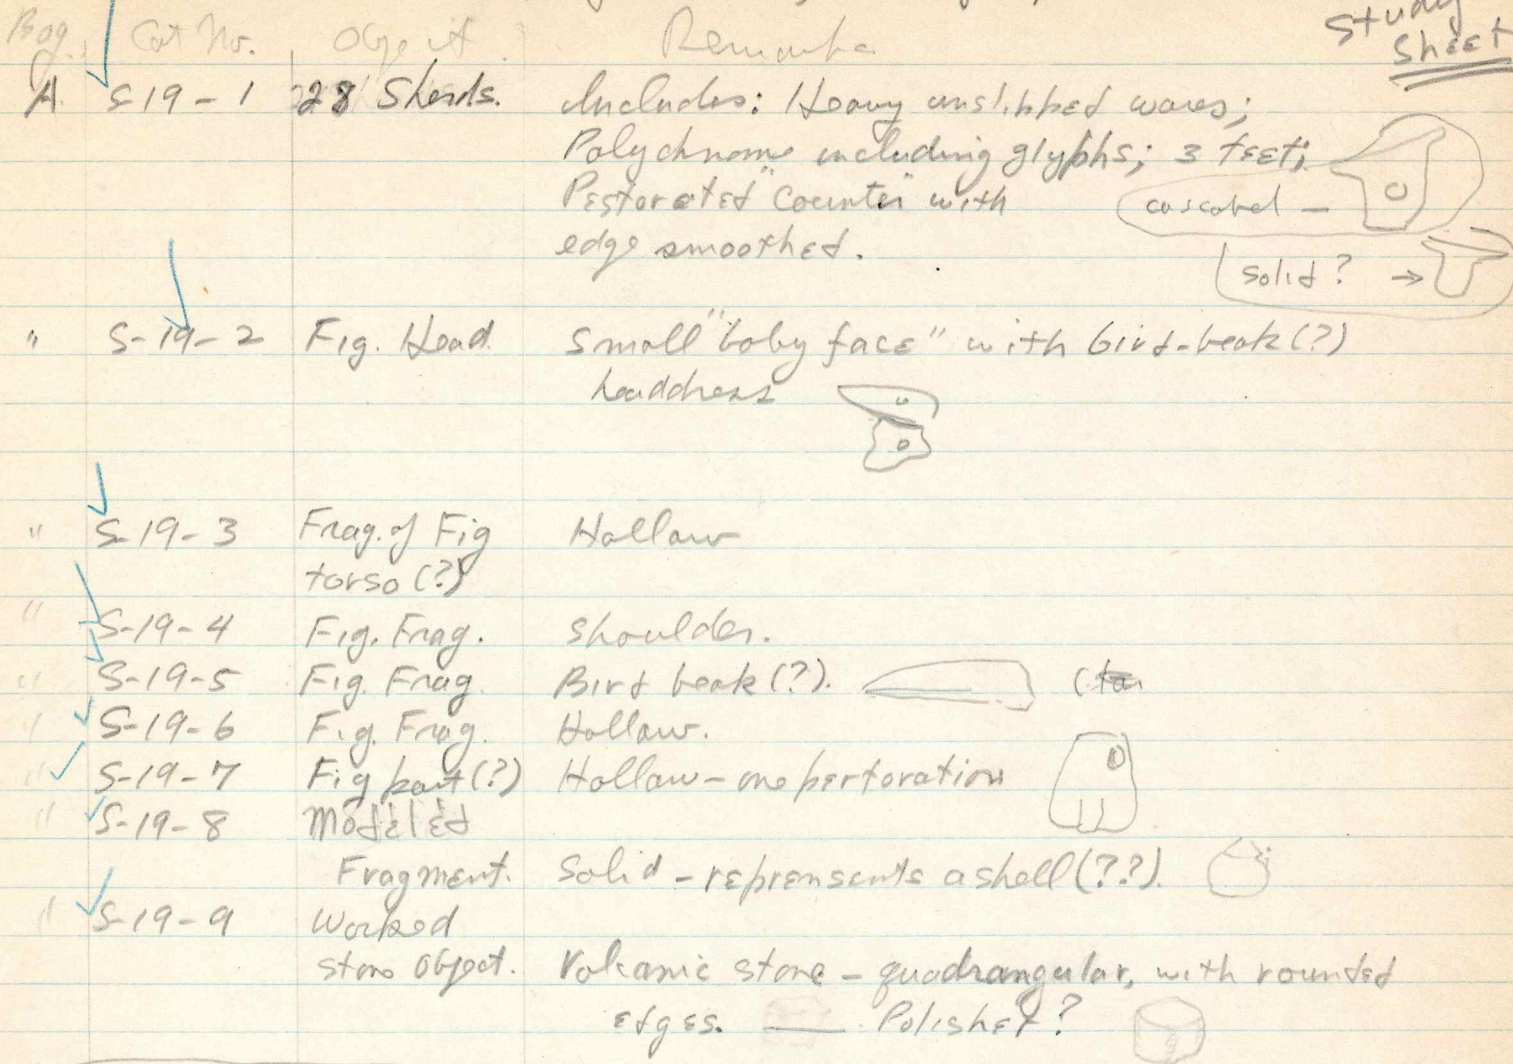 Study
Sheet
Bag. Cat No. Object Remarks
A. S-19-1 28 Sherds. Includes: Heavy unslipped wares;
Polychrome including glyphs; 3 feet;
Perforated "Counter" with
cascabel —
edge smoothed.
solid? →
" S-19-2 Fig. Head. Small "baby face" with bird-beak(?)
headdress
" S-19-3 Frag. of Fig Hollow
torso (?)
" S-19-4 Fig. Frag. Shoulder.
" S-19-5 Fig. Frag. Bird beak (?).
" S-19-6 Fig. Frag. Hollow.
" S-19-7 Fig part (?) Hollow — one perforation
" S-19-8 Modeled
Fragment. Solid — reprensents a shell (??).
" S-19-9 Worked
stone object. Volcanic stone — quadrangular, with rounded
edges. — Polished?